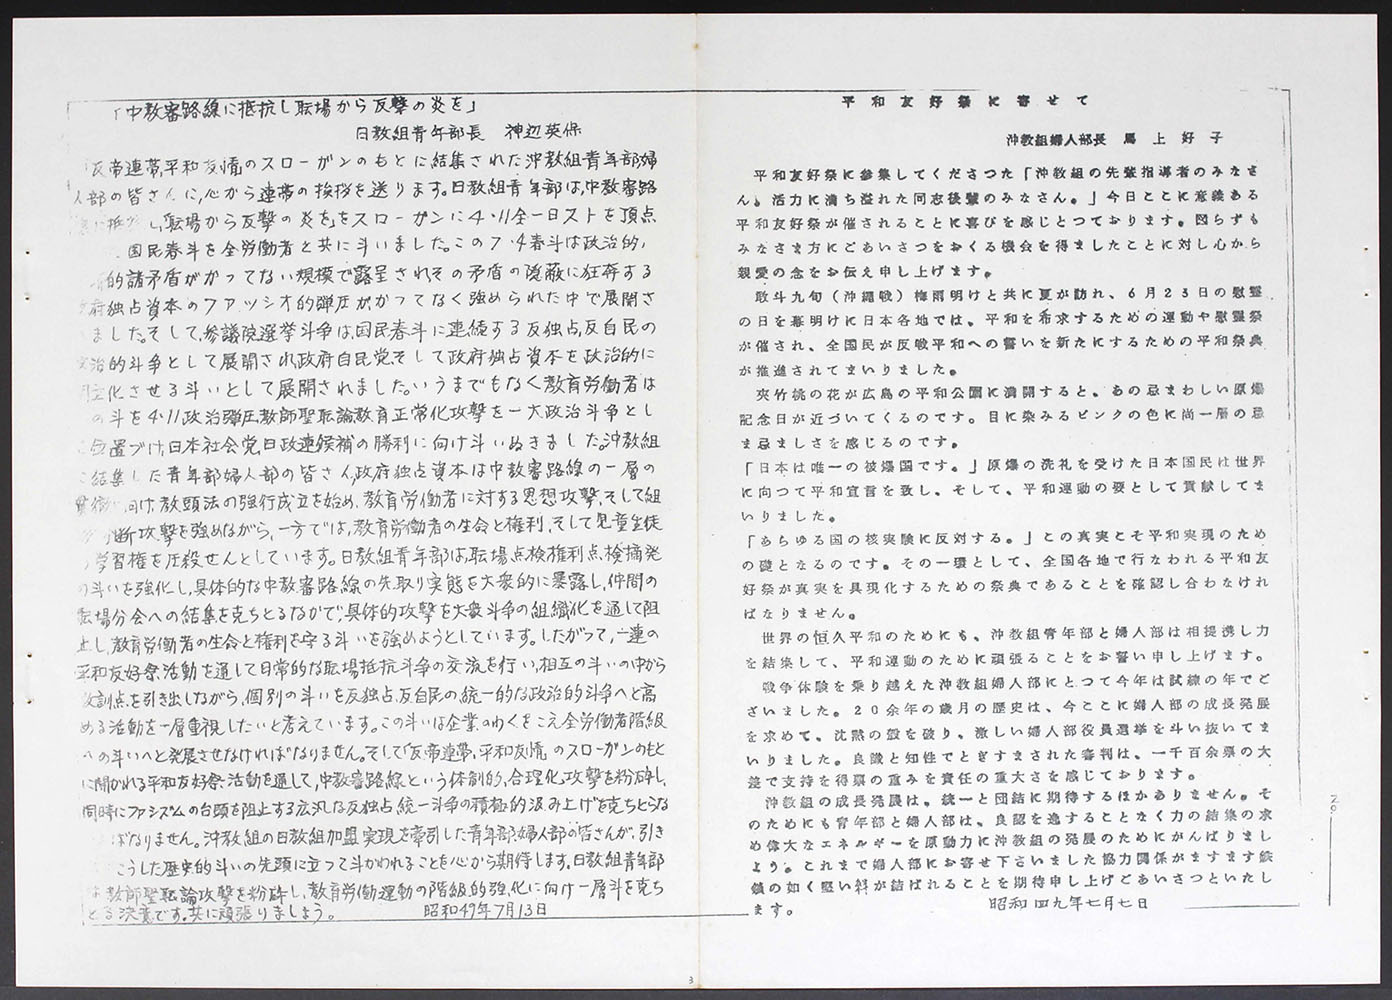 「中教審路線に抵抗し職場から反撃の炎を」
日教組青年部長 神辺英保
「反帝連帯、平和友情」のスローガンのもとに結集された沖教組青年部婦
人部の皆さんに、心から連帯の挨拶を送ります。日教組青年部は、中教審路
し、職場から反撃の炎を」をスローガンに4・11全一日ストを頂点
国民春斗を全労働者と共に斗いました。この7・4春斗は政治的、
的諸矛盾がかつてない規模で露呈されその矛盾の隠蔽に狂奔する
政府独占資本のファッショ的弾圧がかつてなく強められた中で展開さ
ました。そして、参議院選挙斗争は、国民春斗に連続する反独占、反自民の
政治的斗争として展開され政府自民党そして政府独占資本を政治的に
化させる斗いとして展開されました。いうまでもなく教育労働者は
の斗を4・11政治弾圧教師聖職論教育正常化攻撃を一大政治斗争とし
位置づけ、日本社会党、日政連候補の勝利に向け斗いぬきました。沖教組
に結集した青年部婦人部の皆さん、政府独占資本は中教審路線の一層の
貫徹に向け、教頭法の強行成立を始め、教育労働者に対する思想攻撃、そして組
断攻撃を強めながら、一方では、教育労働者の生命と権利、そして児童生徒
の学習権を圧殺せんとしています。日教組青年部は、職場点検権利点検摘発
の斗いを強化し、具体的な中教審路線の先取り実態を大衆的に暴露し、仲間の
職場分会への結集を克ちとるなかで、具体的攻撃を大衆斗争の組織化を通して阻
止し、教育労働者の生命と権利を守る斗いを強めようとしています。したがって、一連の
平和友好祭活動を通して日常的な職場抵抗斗争の交流を行い、相互の斗いの中から
教訓点を引き出しながら、個別の斗いを反独占、反自民の統一的な政治的斗争へと高
める活動を一層重視したいと考えています。この斗いは企業のわくをこえ全労働者階級
への斗いへと発展させなければなりません。そして「反帝連帯、平和友情」のスローガンのもと
に開かれる平和友好祭活動を通して、中教審路線という体制的、合理化攻撃を粉砕し、
同時にファシズムの台頭を阻止する広汎な反独占統一斗争の積極的汲み上げを克ちとらな
ばなりません。沖教組の日教組加盟実現を牽引した青年部、婦人部の皆さんが、引き
こうした歴史的斗いの先頭に立って斗かわれることを心から期待します。日教組青年部
は教師聖職論攻撃を粉砕し、教育労働運動の階級的強化に向け一層斗を克ち
とる決意です。共に頑張りましょう。 昭和49年7月13日
平和友好祭に寄せて
沖教組婦人部長 馬上好子
平和友好祭に参集してくださつた「沖教組の先輩指導者のみなさ
ん。活力に満ち溢れた同志後輩のみなさん。」今日ここに意義ある
平和友好祭が催されることに喜びを感じとつております。図らずも
みなさま方にごあいさつをおくる機会を得ましたことに対し心から
親愛の念をお伝え申し上げます。
敢斗九旬(沖縄戦)梅雨明けと共に夏が訪れ、6月23日の慰霊
の日を幕明けに日本各地では、平和を希求するための運動や慰霊祭
が催され、全国民が反戦平和への誓いを新たにするための平和祭典
が推進されてまいりました。
夾竹桃の花が広島の平和公園に満開すると、あの忌まわしい原爆
記念日が近づいてくるのです。目に染みるピンクの色に尚一層の忌
ま忌ましさを感じるのです。
「日本は唯一の被爆国です。」原爆の洗礼を受けた日本国民は世界
に向つて平和宣言を致し、そして、平和運動の要として貢献してま
いりました。
「あらゆる国の核実験に反対する。」この真実こそ平和実現のため
の礎となるのです。その一環として、全国各地で行なわれる平和友
好祭が真実を具現化するための祭典であることを確認し合わなけれ
ばなりません。
世界の恒久平和のためにも、沖教組青年部と婦人部は相提携し力
を結集して、平和運動のために頑張ることをお誓い申し上げます。
戦争体験を乗り越えた沖教組婦人部にとつて今年は試練の年でご
ざいました。20余年の歳月の歴史は、今ここに婦人部の成長発展
を求めて、沈黙の殻を破り、激しい婦人部役員選挙を斗い抜いてま
いりました。良識と知性でとぎすまされた審判は、一千百余票の大
差で支持を得票の重みを責任の重大さを感じております。
沖教組の成長発展は、統一と団結に期待するほかありません。そ
のためにも青年部と婦人部は、良認を逸することなく力の結集の求
め偉大なエネルギーを原動力に沖教組の発展のためにがんばりまし
よう。これまで婦人部にお寄せ下さいました協力関係がますます鉄
鎖の如く堅い絆が結ばれることを期待申し上げごあいさつといたし
ます。
昭和四九年七月七日
3